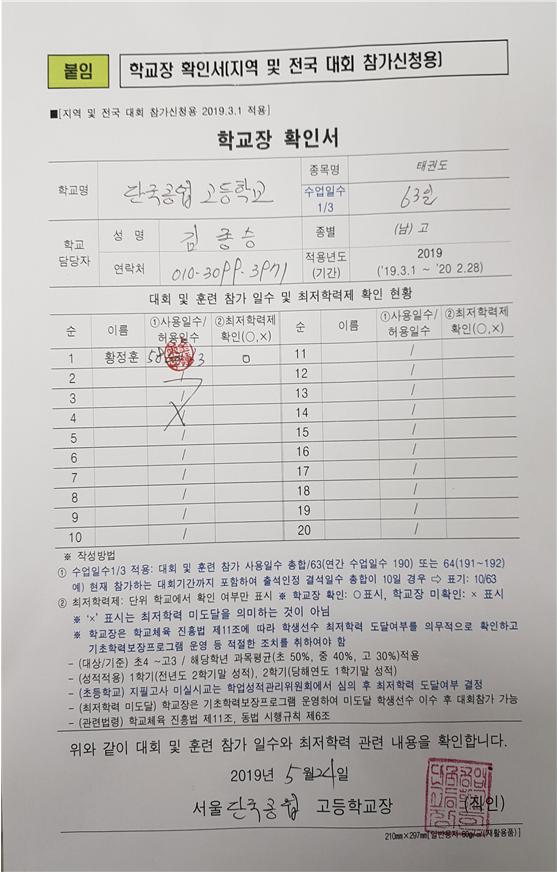 붙임
학교장 확인서(지역 및 전국 대회 참가신청용)
■[지역 및 전국 대회 참가신청용 2019.3.1 적용]
학교장 확인서
학교명 단국공업 고등학교 종목명 태권도
수업일수 1/3 63일
학교 담당자 성 명 김종승 종별 (남) 고
연락처 010-3099-3971 적용년도 (기간) 2019 ('19.3.1 ~ '20 2.28)
대회 및 훈련 참가 일수 및 최저학력제 확인 현황
순 이름 ①사용일수/허용일수 ②최저학력제 확인(○,×) 순 이름 ①사용일수/허용일수 ②최저학력제 확인(○,×)
1 황정훈 58 3 ○ 11 /
2 / 12 /
3 / 13 /
4 / 14 /
5 / 15 /
6 / 16 /
7 / 17 /
8 / 18 /
9 / 19 /
10 / 20 /
※ 작성방법
① 수업일수1/3 적용: 대회 및 훈련 참가 사용일수 총합/63(연간 수업일수 190) 또는 64(191~192)
예) 현재 참가하는 대회기간까지 포함하여 출석인정 결석일수 총합이 10일 경우 ⇨ 표기: 10/63
② 최저학력제: 단위 학교에서 확인 여부만 표시 ※ 학교장 확인: ○표시, 학교장 미확인: × 표시
※ '×' 표시는 최저학력 미도달을 의미하는 것이 아님
※ 학교장은 학교체육 진흥법 제11조에 따라 학생선수 최저학력 도달여부를 의무적으로 확인하고
기초학력보장프로그램 운영 등 적절한 조치를 취하여야 함
- (대상/기준) 초4 ~고3 / 해당학년 과목평균(초 50%, 중 40%, 고 30%)적용
- (성적적용) 1학기(전년도 2학기말 성적), 2학기(당해연도 1학기말 성적)
- (초등학교) 지필고사 미실시교는 학업성적관리위원회에서 심의 후 최저학력 도달여부 결정
- (최저학력 미도달) 학교장은 기초학력보장프로그램 운영하여 미도달 학생선수 이수 후 대회참가 가능
- (관련법령) 학교체육 진흥법 제11조, 동법 시행규칙 제6조
위와 같이 대회 및 훈련 참가 일수와 최저학력 관련 내용을 확인합니다.
2019년 5월24일
서울 단국공업 고등학교장 (직인)
210㎜×297㎜[일반용지 60g/㎡(재활용품)]